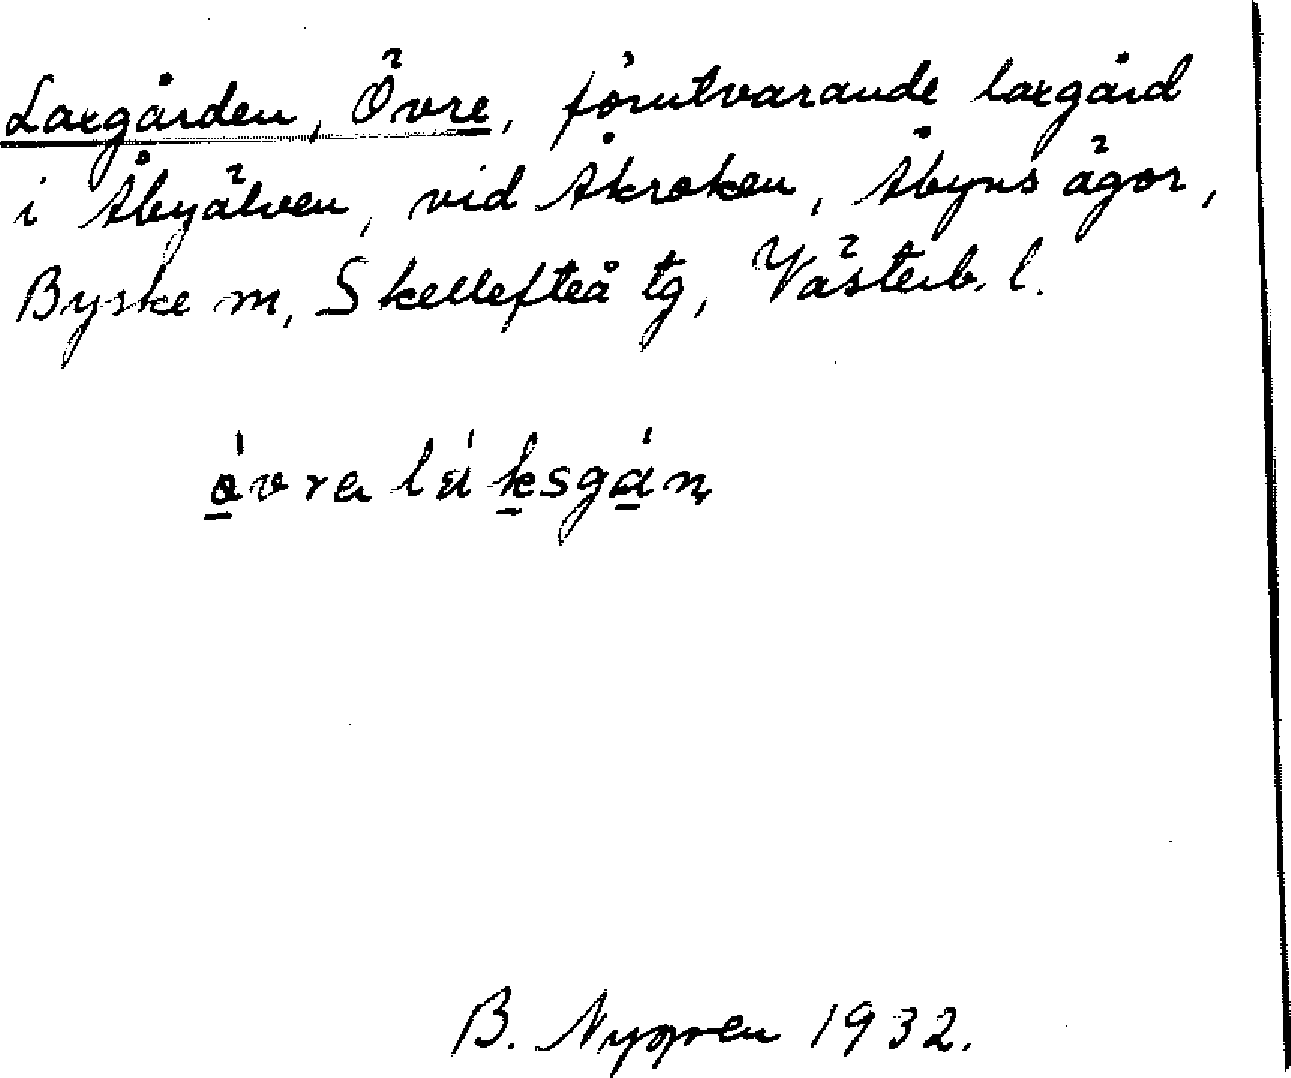 Laxgården, Övre, förutvarande laxgård
i Åbyälven, vid Åkroken, Åbyns ägor,
Byske m, Skellefteå tg, Västerb. l.
B. Nygren 1932.